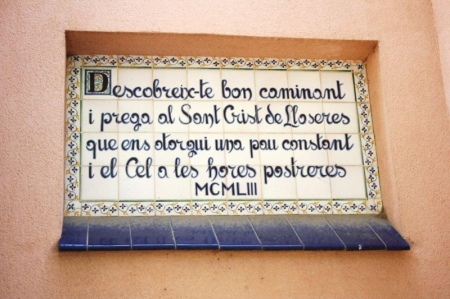 Descobreix-te bon caminant
i prega al Sant Crist de Lloseres
que ens otorgui una pau constant
i el Cel a les hores postreres
MCMLIII